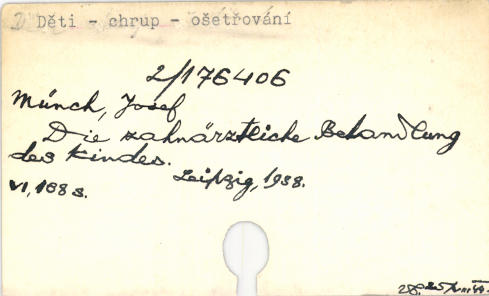 Děti - chrup - ošetřování
2/176406
Münch, Josef
Die zahnärztliche Behandlung
des Kindes.
Leipzig, 1938.
VI, 188 s.